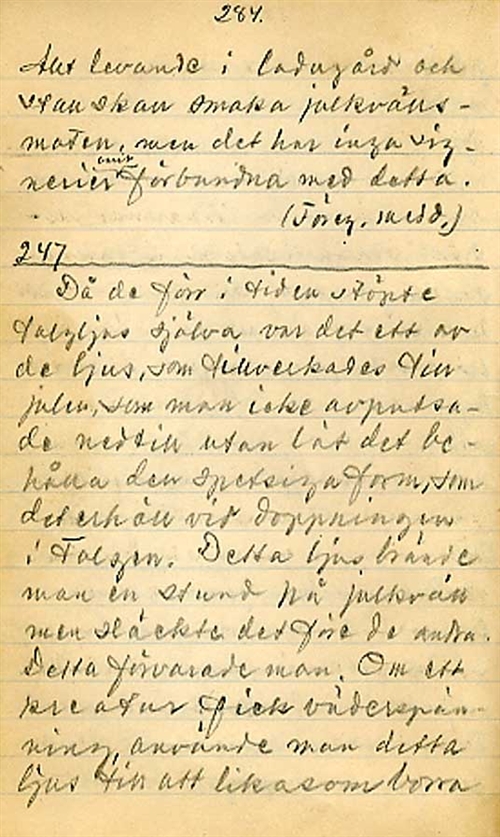 284.
Allt levande i ladugård och
stan skan smaka julkvälls-
maten, men det har inga sig-
nerier förbundna med detta.
(Föreg. medd.)
247
Då de förr i tiden stöpte
talgljus själva var det ett av
de ljus, som tillverkades till
julen, som man icke avputsa-
de nedtill utan lät det be-
hålla den spetsiga form, som
det erhöll vid doppningen
i Talgen. Detta ljus brände
man en stund på julkväll
men släckte det före de andra.
Detta förvarade man. Om ett
kreatur fick väderspän-
ning, använde man detta
ljus till att likasom borra